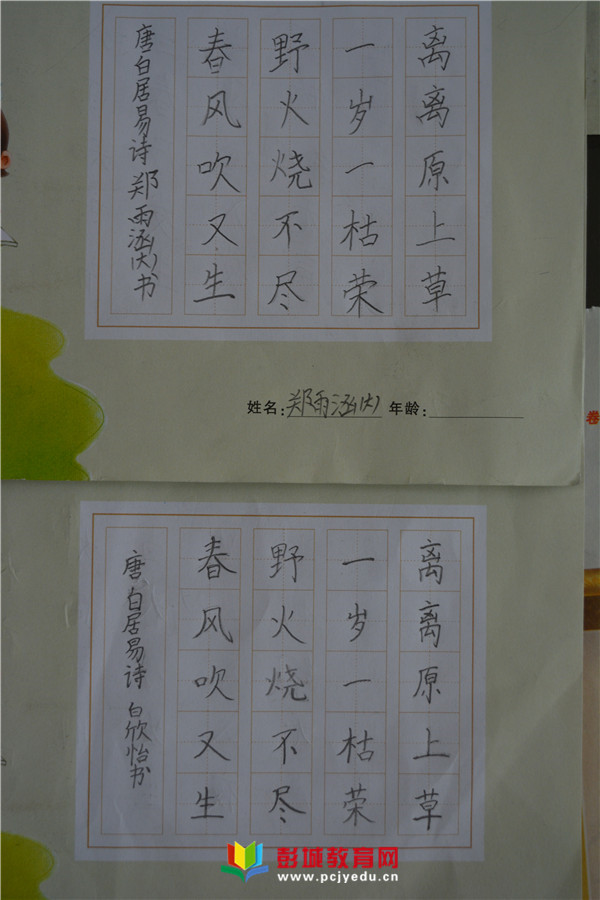 离离原上草
一岁一枯荣
野火烧不尽
春风吹又生
唐白居易诗 郑雨涵(大)书
姓名:郑雨涵(大) 年龄:
卷
离离原上草
一岁一枯荣
野火烧不尽
春风吹又生
唐白居易诗 白欣怡书
彭城教育网
www.pcjyedu.cn